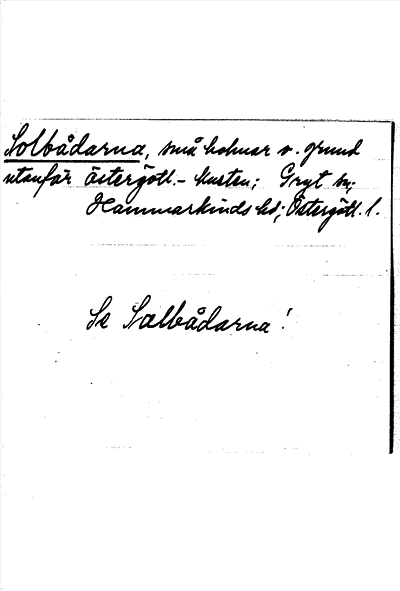 Solbådarna, små holmar o. grund
utanför Östergötl.-kusten; Gryt sn;
Hammarkinds hd; Östergötl. l.
Se Salbådarna!